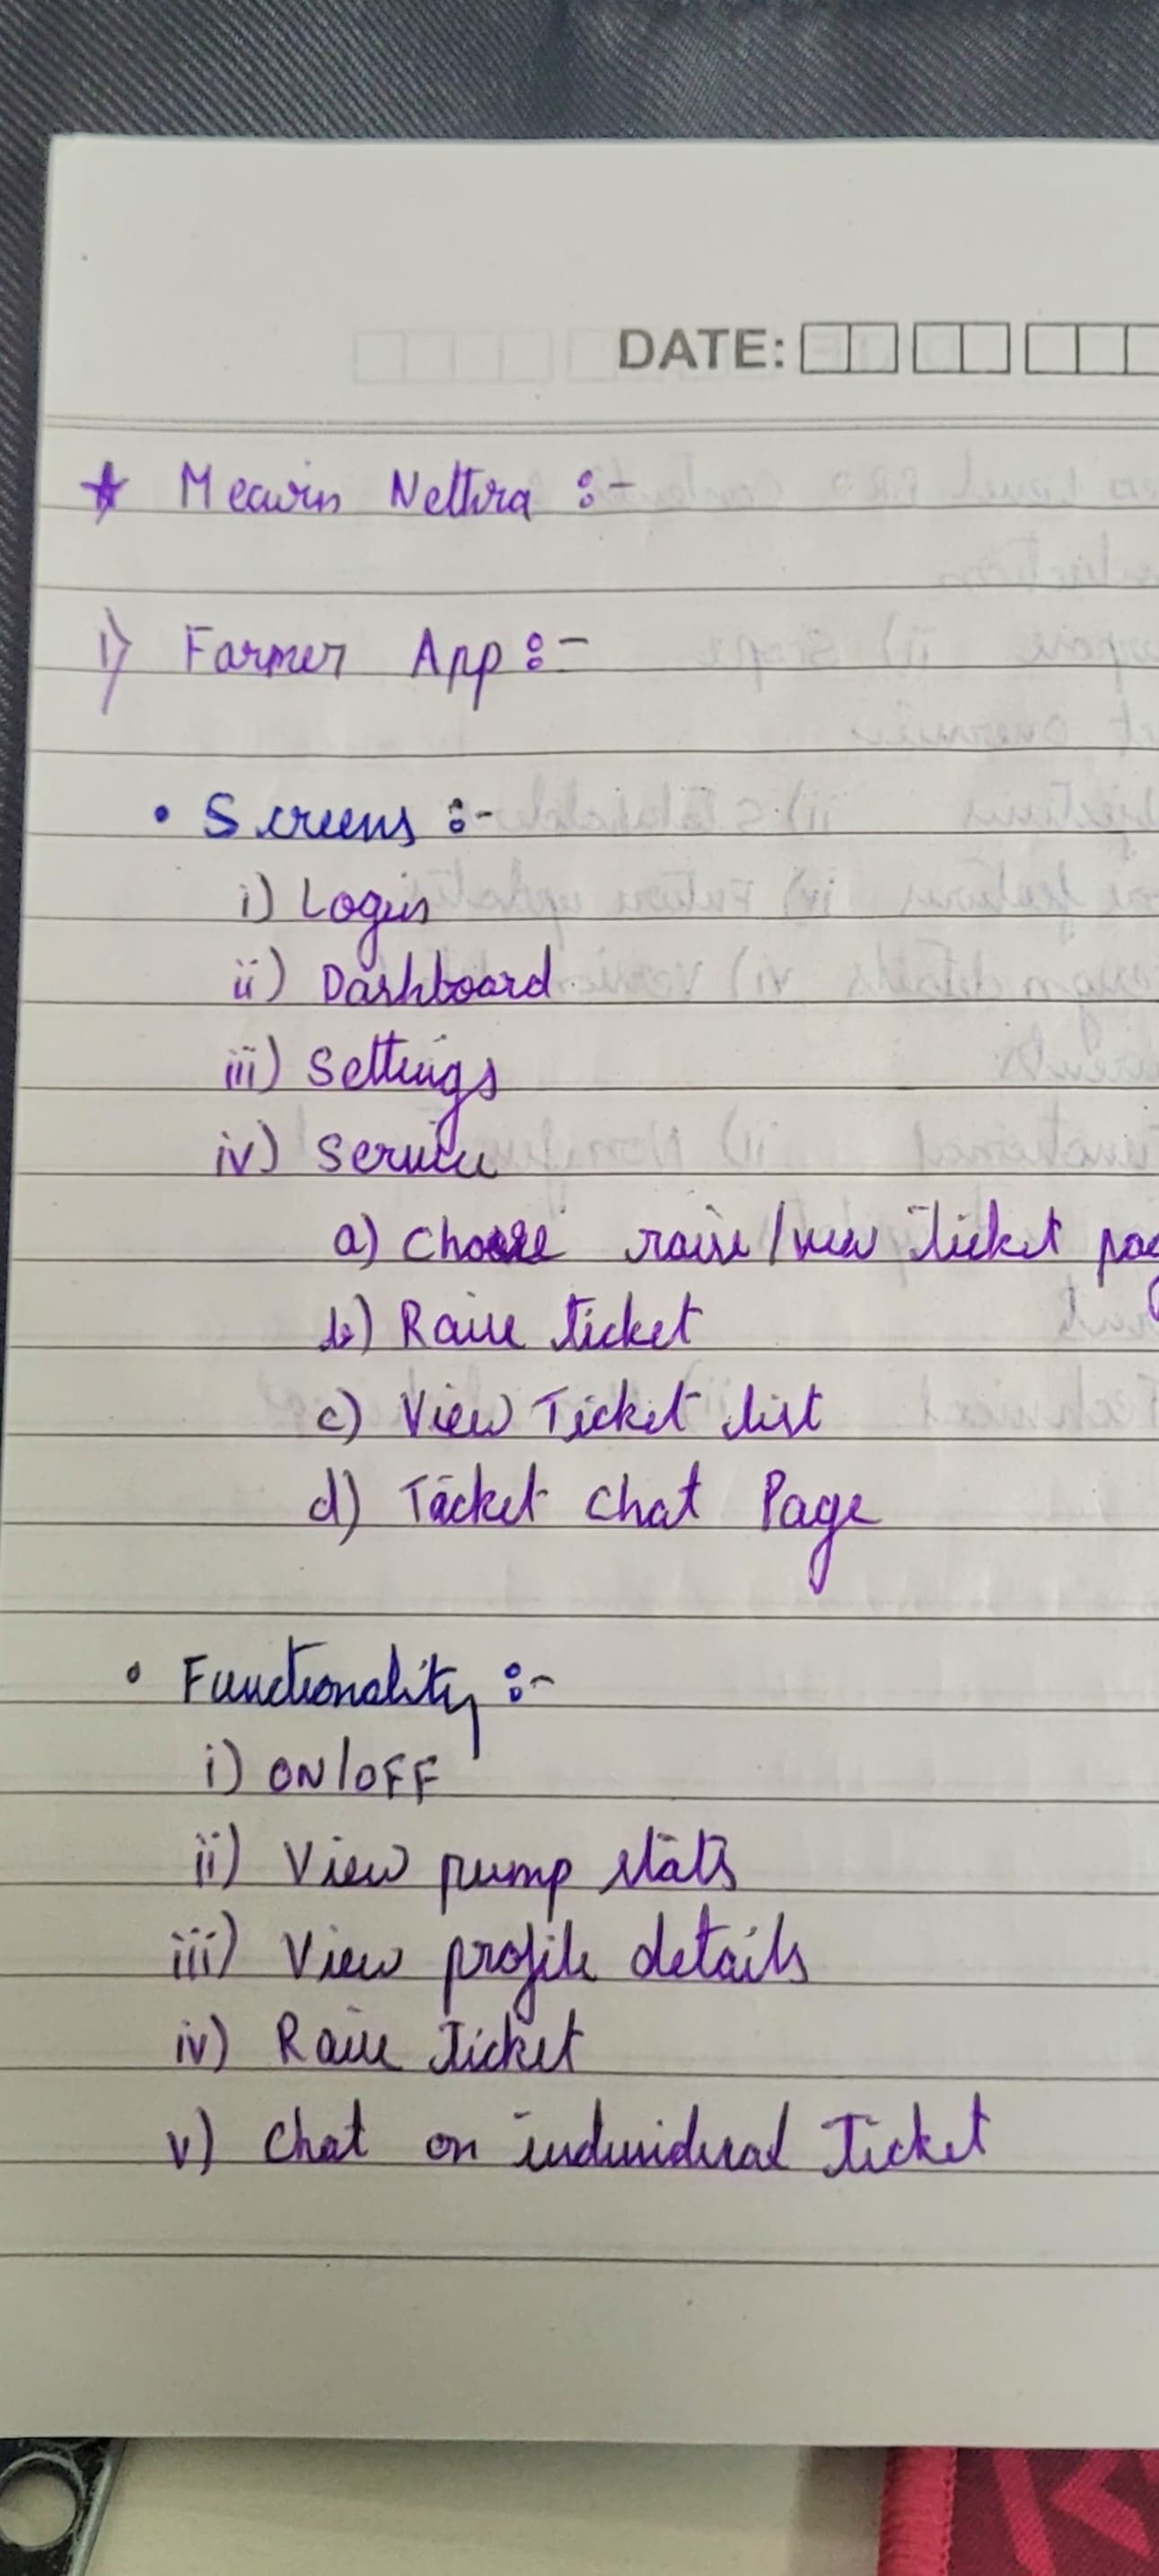 DATE:
★ Mecwin Nethra :-
1) Farmer App :-
• Screens :-
i) Login
ii) Dashboard
iii) Settings
iv) Service
a) Choose raise/view ticket
b) Raise ticket
c) View Ticket list
d) Ticket chat Page
• Functionality :-
i) ON/OFF
ii) View pump stats
iii) View profile details
iv) Raise Ticket
v) Chat on individual Ticket